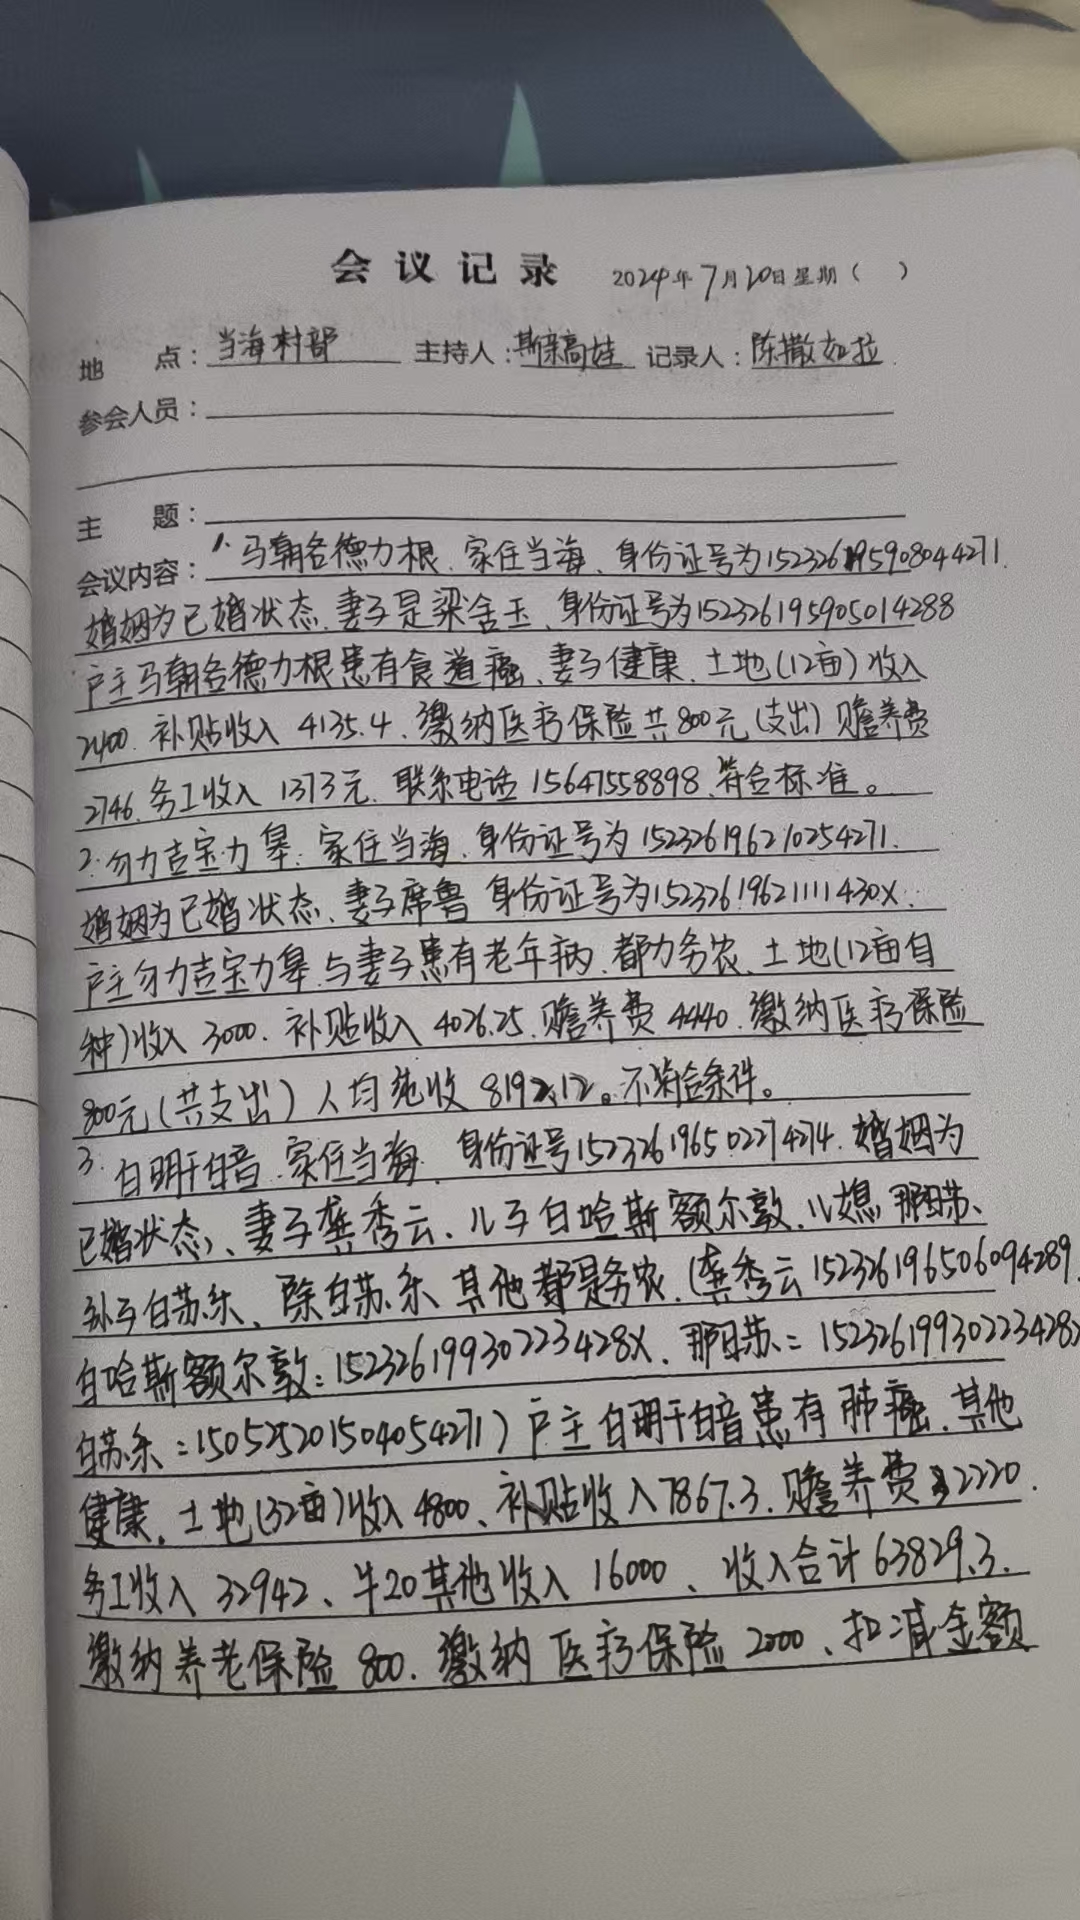 会议记录 2024年7月20日星期( )
地 点：当海村部 主持人：斯琴高娃 记录人：陈撒如拉
参会人员：
主 题：
会议内容：1、马朝各德力根、家住当海、身份证号为152326195908044271.
婚姻为已婚状态、妻子是梁舍玉、身份证号为152326195905014288
户主马朝各德力根患有食道癌、妻子健康、土地(12亩)收入
2400、补贴收入4135.4、缴纳医疗保险共800元(支出)赡养费
2746、务工收入1373元、联系电话15647558898、符合标准。
2、勿力吉宝力皋、家住当海、身份证号为152326196210254271.
婚姻为已婚状态、妻子席鲁 身份证号为15232619621111430X.
户主勿力吉宝力皋与妻子患有老年病、都为务农、土地(12亩自
种)收入3000、补贴收入4026.25、赡养费4440、缴纳医疗保险
800元(共支出)人均纯收8192.12。不符合条件。
3、白明干白音、家住当海、身份证号152326196502274274、婚姻为
已婚状态、妻子龚秀云、儿子白哈斯额尔敦、儿媳那日苏、
孙子白苏乐、除白苏乐其他都是务农、(龚秀云152326196506094289、
白哈斯额尔敦：15232619930223428X、那日苏：15232619930223428X
白苏乐：150525201504054271)户主白明干白音患有肺癌、其他
健康、土地(32亩)收入4800、补贴收入7867.3、赡养费2220.
务工收入32942、牛20其他收入16000、收入合计63829.3.
缴纳养老保险800、缴纳医疗保险2000、扣减金额